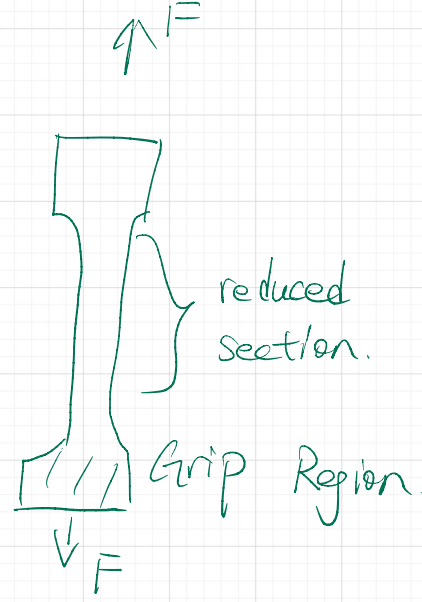 F
reduced
section.
Grip Region.
F